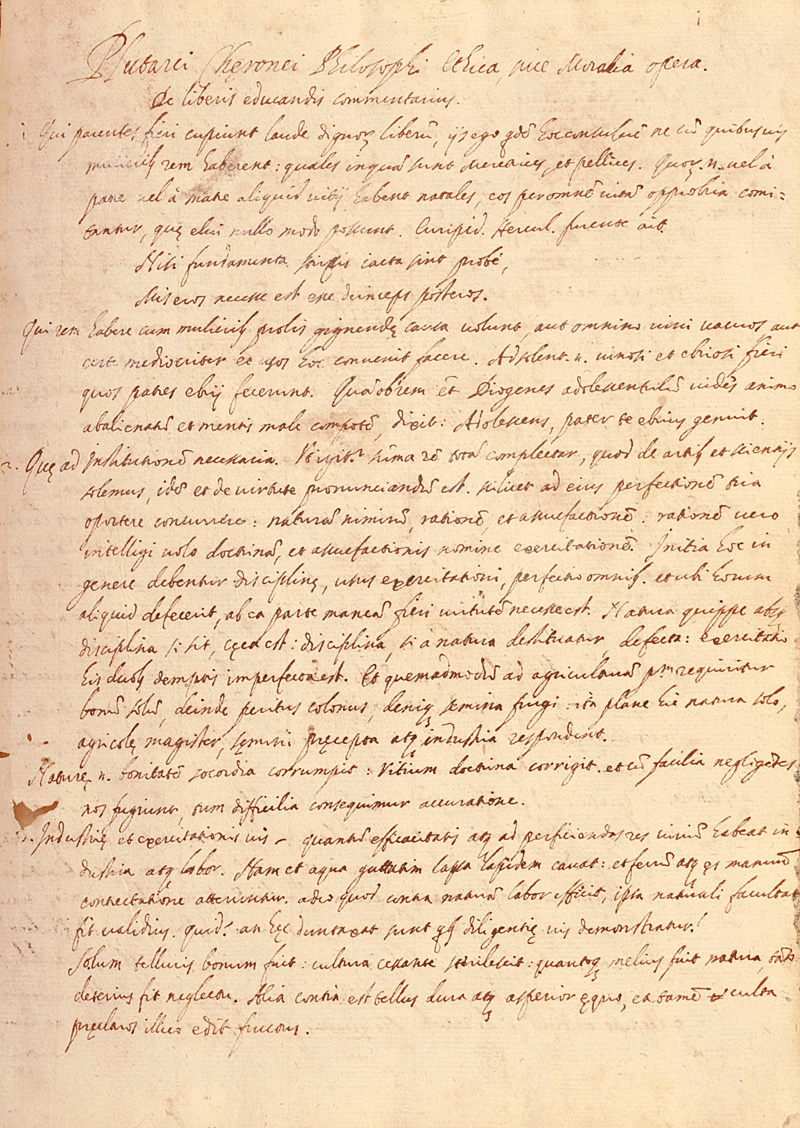 Plutarci Chęronei Philosophi Ethica, sive Moralia opera.
De liberis educandis commentarius.
1. Qui parentes fieri cupiunt laude dignorum liberū, ijs ego quidē hoc consuluerī ne cū quibusvis
mulierib rem haberent: quales inquā sunt Meretrices, et pellices. Quor. n. vel à
patre vel à matre aliquid vitij habent natales, eos per omnē vitam opprobria comi-
tantur, quę elui nullo modo possunt. Euripid. Hercul. furente ait.
Nisi fundamenta stirpis iacta sint probè,
Miseros necesse est esse deinceps posteros.
Qui rem habere cum mulierib prolis gignendę causa volunt, aut omnino vini vacuos aut
certe mediocriter eo usos hoc convenit facere. Ad solent. n. vinosi et ebriosi fieri
quos patres ebrij fecerunt. Quāobrem et Diogenes adolescentulū vidēs animo
abalienatū et mentis male compotē, dixit: Adolescens, pater te ebrius genuit.
2. Quę ad Institutionē necessaria. Ut igitr summa rē totā complectar, quod de artib et scientijs
solemus, idē et de virtute pronunciandū est. scilicet ad eius perfectionē tria
oportere concurrere: naturā nimirū, rationē, et assuefactionē: rationē vero
intelligi volo doctrinā, et assuefactionis nomine exercitationē. Initia hoc in
genere debentur disciplinę, usus exercitationi, perfectio omnib. et ubi horum
aliquid defecerit, ab ea parte mancā fieri virtutē necesse est. Natura quippe absq
disciplina si sit, cęca est: disciplina, si a natura destituatur, defecta: exercitatio
his duab demptis imperfecta est. Et quemadmodū ad agriculturā pm requiritur
bonū solū, deinde peritus colonus, deniq semina frugi: ita plane hic natura solo,
agricolę magister, semini pręcepta atq industria respondent.
Naturę n. bonitatē socordia corrumpit: Vitium doctrina corrigit. et cū facilia negligētes
nos fugiunt, tum difficilia consequimur accuratione.
3. Industrię et exercitationis vis – quantū efficacitatis atq ad perficiendas res vivium habeat in
dustria atq labor. Nam et aqua guttatim lapsa lapidem cavat: et ferrū atq ęs manuum
contrectatione atteruntur. adeo quod contra naturā labor efficit, ipsa naturali facultat
fit validius. quid? an hęc duntaxat sunt quib diligentię vis demonstratur?
Solum telluris bonum fuit: cultura cessante sterilescit: quantoq melius fuit natura, tātō
deterius fit neglectu. Alia contra est tellus dura atq asperior ęquo, et tamē culta
pręclaros illico edit fructus.